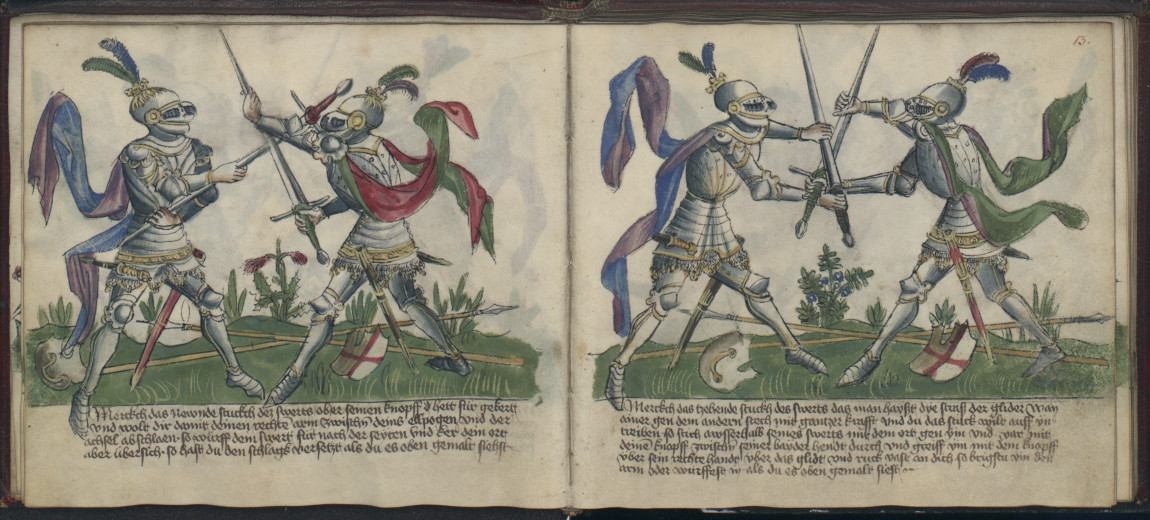 Merckch das Newnde stuckch des swerts ober seinen knopff d hett für gekert
vnd wolt dir damit deinen rechte arm zwischn deins ellpogen vnd der
achsel abschlaen so würff dein swert für nach der seyten vnd ker dein ort
aber übersich so hast du den schlag v'setzt als du es oben gemalt siehst
13.
Merckch das zehende stuckh des swerts das man haysst dye straff der glider Wan
ainer gen dem andern sticht mit gantzer krafft vnd du das stuck wilt auff in
treiben so stich ausserhalb seines swerts mit dem ort gen im vnd var mit
deinē knopff zwischn seiner bayder hendt durch vnd greiff im mit dem knopff
vber sein rechte handt vber das glidt vnd ruck vast an dich so brigstu im den
arm oder würffest in als du es oben gemalt siest